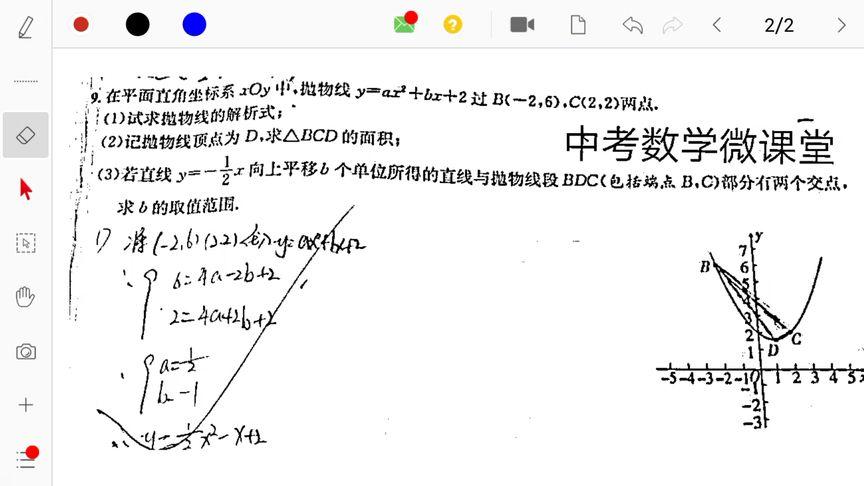 2/2
9.在平面直角坐标系 xOy 中,抛物线 y=ax²+bx+2 过 B(-2,6),C(2,2)两点.
(1)试求抛物线的解析式;
(2)记抛物线顶点为 D,求△BCD 的面积;
(3)若直线 y=-1/2x 向上平移 b 个单位所得的直线与抛物线段 BDC(包括端点 B,C)部分有两个交点,
求 b 的取值范围.
中考数学微课堂
1) 将(-2,6)(2,2)代入y=ax²+bx+2
6=4a-2b+2
2=4a+2b+2
a=1/2
b=-1
∴ y=1/2x²-x+2
y
7
B 6
5
4
3
2 C
1 D
-5 -4 -3 -2 -1 O 1 2 3 4 5 x
-1
-2
-3